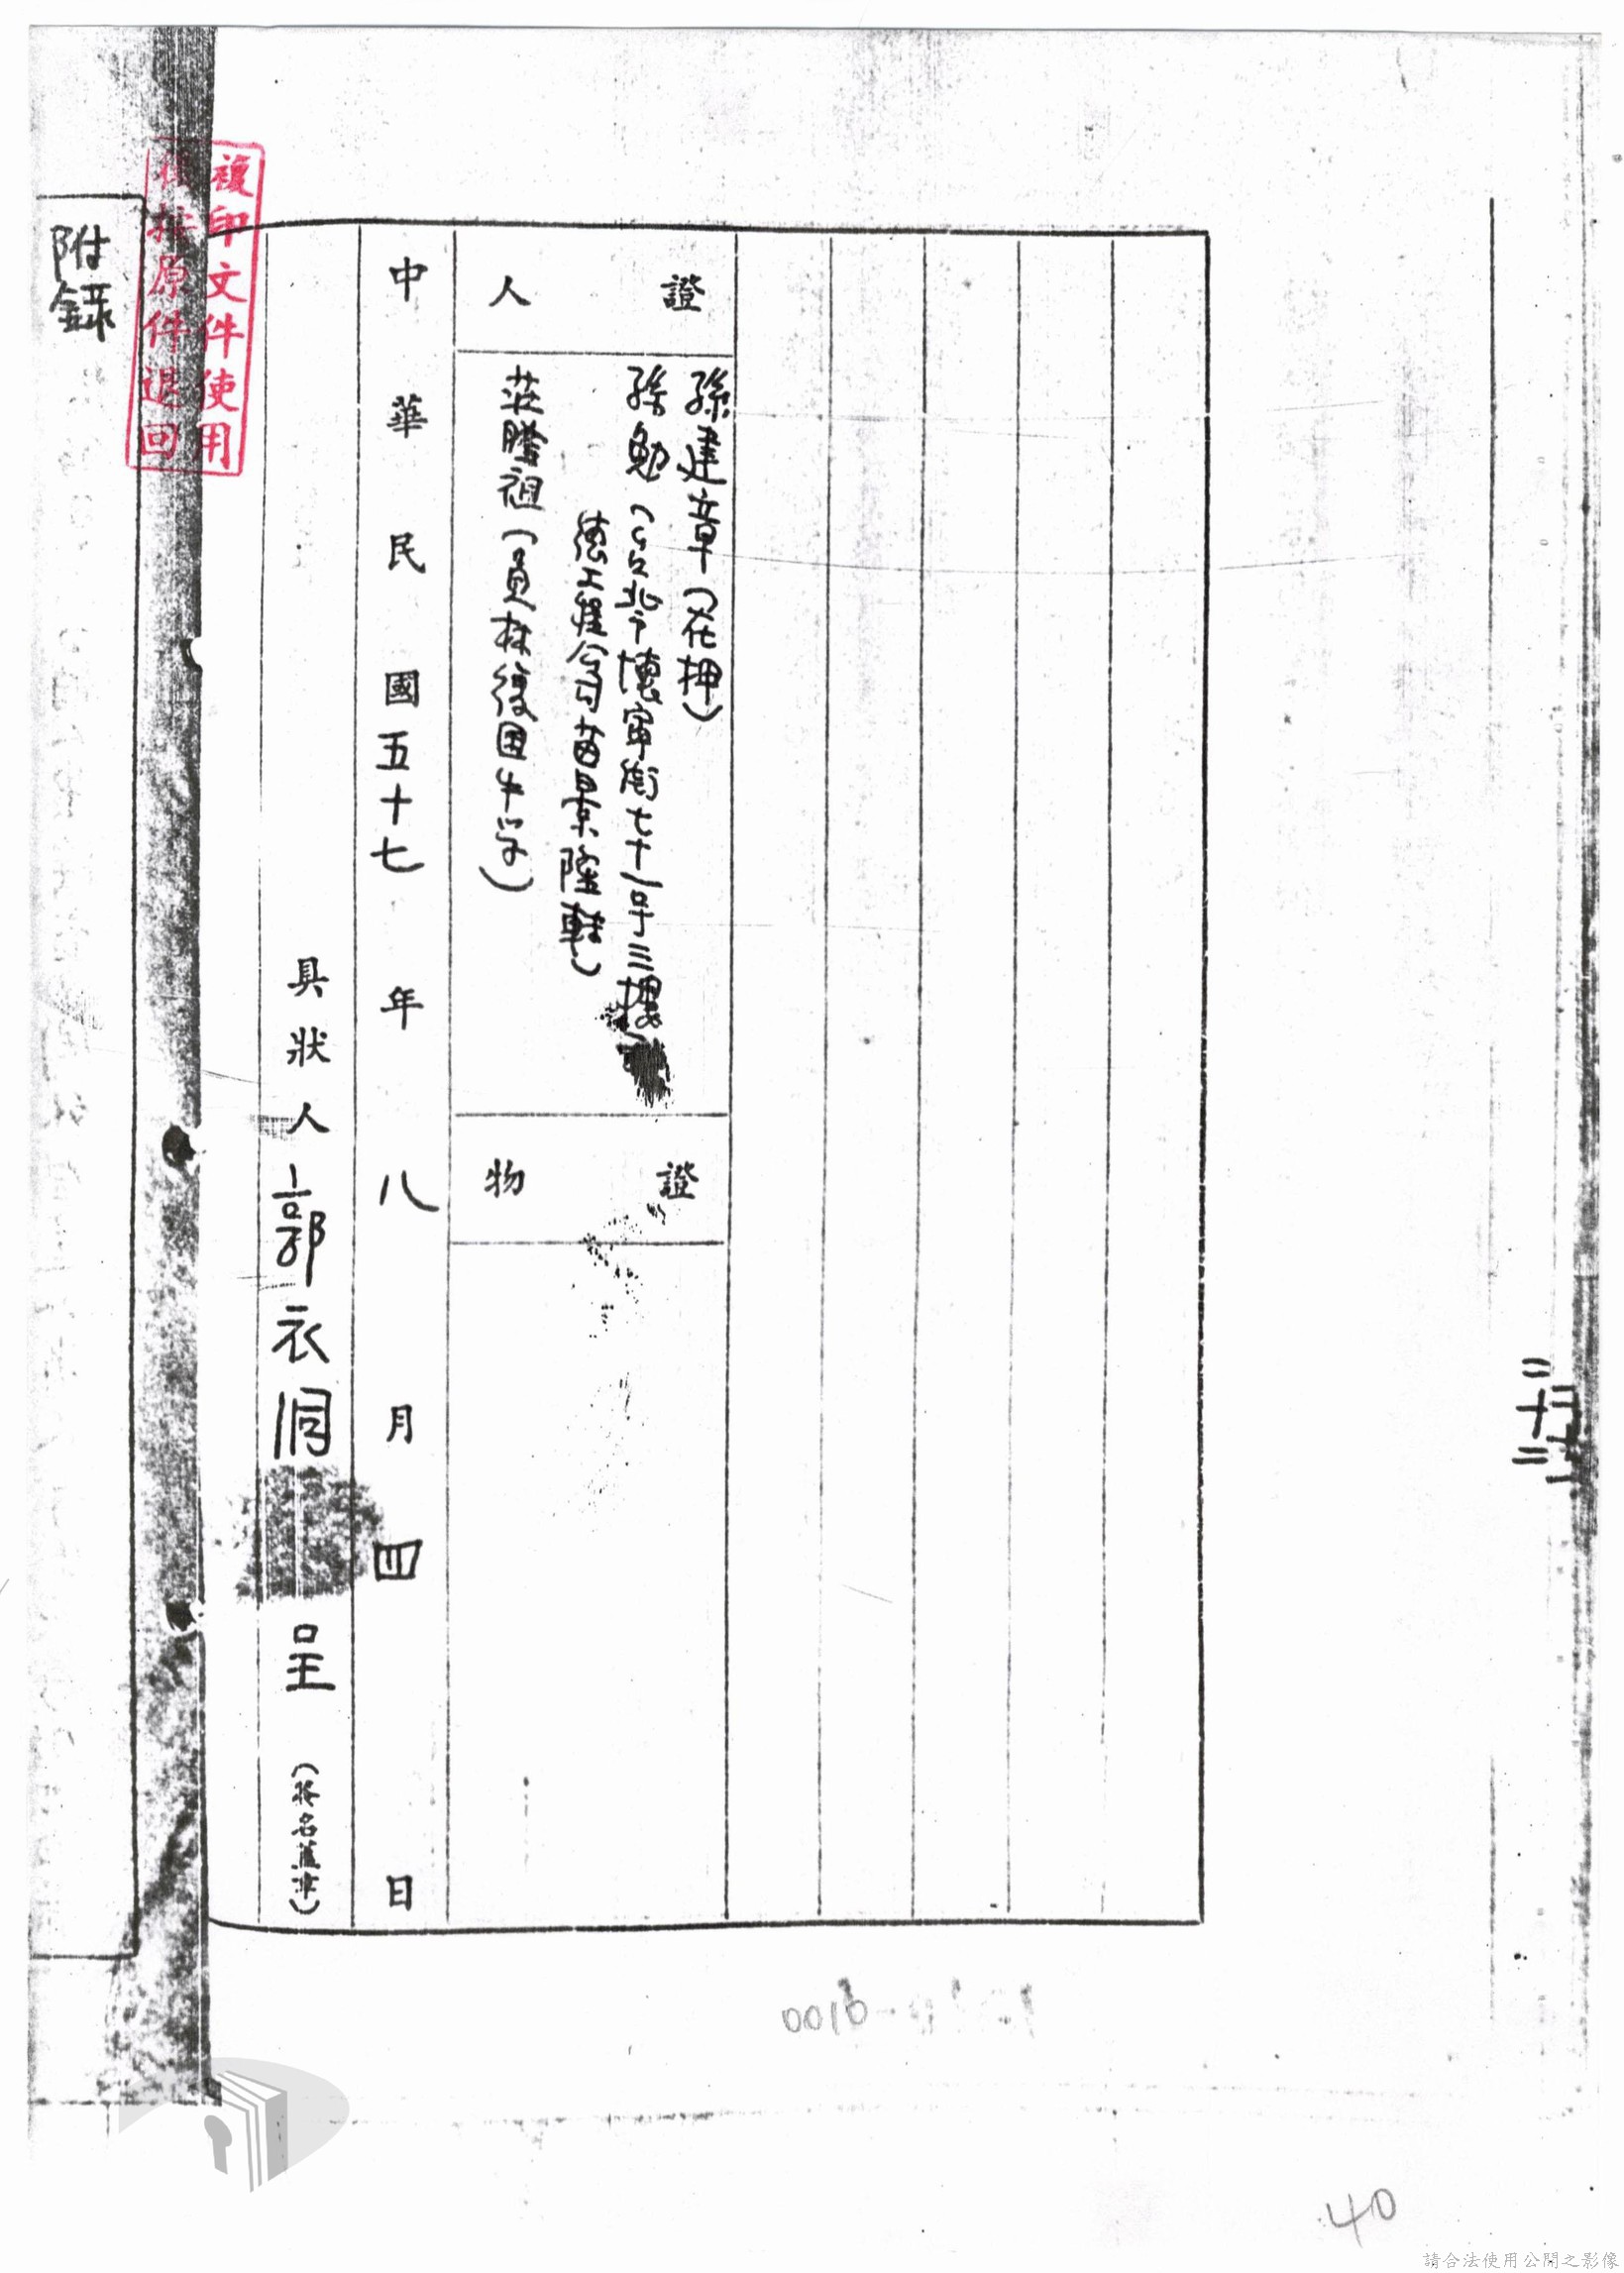 證人
孫建章(在押)
孫勉(台北市懷寧街七十一号三樓
德工程公司苗景隆轉)
莊騰祖(員林復国中学)
證物
中華民國五十七年八月四日
具狀人郭衣洞呈
複印文件使用
後按原件退回
附錄
二十二
0016
40
請合法使用公開之影像